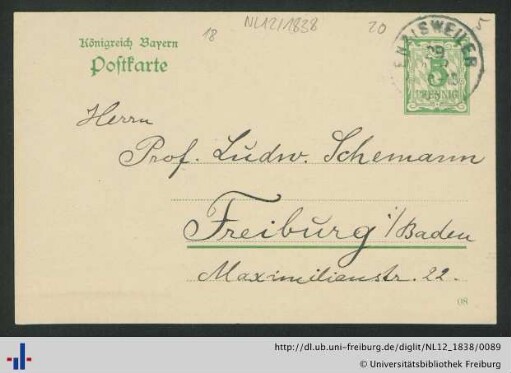 NL12/1838
18
20
5
Königreich Bayern
Postkarte
5
PFENNIG
Herrn
Prof. Ludw. Schemann
Freiburg i/Baden
Maximilienstr. 22.
08
http://dl.ub.uni-freiburg.de/diglit/NL12_1838/0089
© Universitätsbibliothek Freiburg